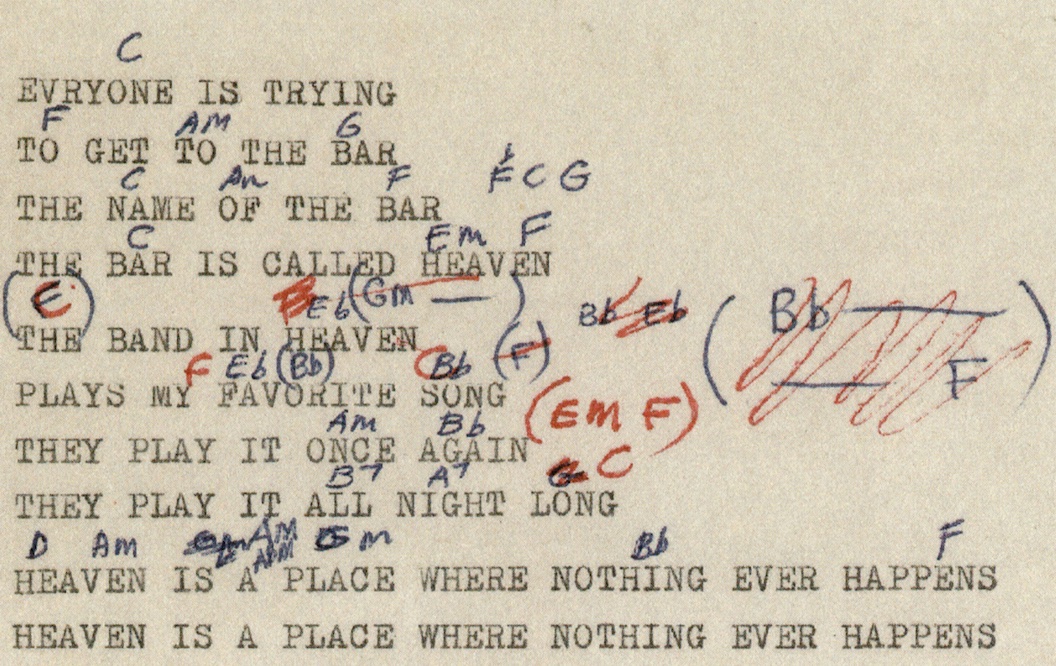 C
EVRYONE IS TRYING
F AM G
TO GET TO THE BAR
C Am F F C G
THE NAME OF THE BAR
C Em F
THE BAR IS CALLED HEAVEN
(E) Eb (Gm —) Bb Eb (Bb F)
THE BAND IN HEAVEN
F Eb (Bb) C Bb (F)
PLAYS MY FAVORITE SONG
Am Bb (Em F)
THEY PLAY IT ONCE AGAIN
B7 A7 G C
THEY PLAY IT ALL NIGHT LONG
D Am Am Gm Bb F
HEAVEN IS A PLACE WHERE NOTHING EVER HAPPENS
HEAVEN IS A PLACE WHERE NOTHING EVER HAPPENS